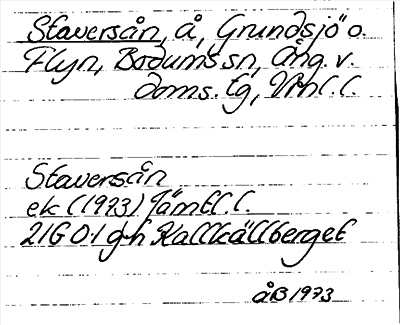 Staversån, å, Grundsjö o.
Flyn, Bodums sn, Ång. v.
doms. tg, Vrnl. l.
Staversån
ek (1973) Jämtl. l.
21G 0.1 g-h Kallkällberget
åB 1973